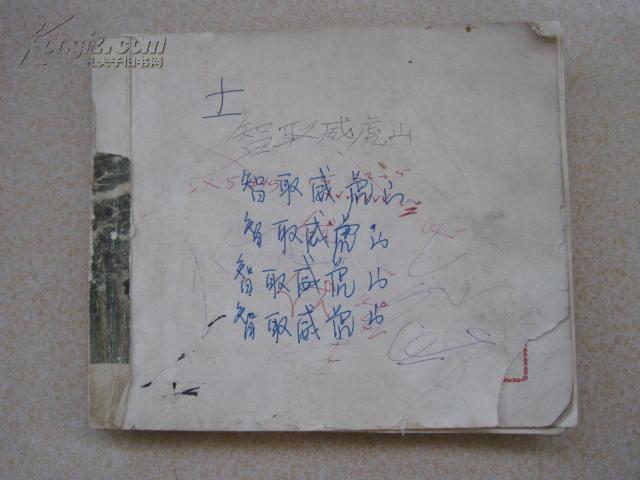 Kongfz.com
孔夫子旧书网
士
智取威虎山
智取威虎山
智取威虎山
智取威虎山
智取威虎山